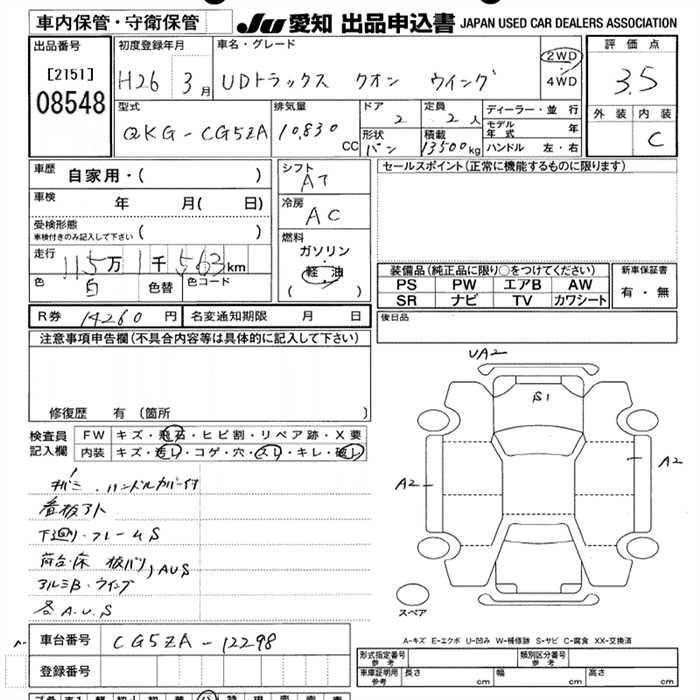 車内保管・守衛保管
JU 愛知 出品申込書 JAPAN USED CAR DEALERS ASSOCIATION
出品番号
[2151]
08548
初度登録年月
H26 3月
車名・グレード
UDトラックス クオン ウイング
2WD
4WD
評価点
3.5
外装 内装
C
型式
QKG-CG5ZA
排気量
10,830 CC
ドア
2
定員
2人
形状
バン
積載
13500kg
ディーラー・並行
モデル年式 年
ハンドル 左・右
車歴 自家用・( )
車検 年 月( 日)
受検形態
車検付きのみ記入して下さい ( )
走行
115万1千563km
色 白 色替 色コード
シフト
AT
冷房
AC
燃料
ガソリン
軽油
( )
セールスポイント(正常に機能するものに限ります)
装備品(純正品に限り○をつけてください)
PS PW エアB AW
SR ナビ TV カワシート
新車保証書
有・無
R券 14260円 名変通知期限 月 日
後日品
注意事項申告欄(不具合内容等は具体的に記入して下さい)
修復歴 有〔箇所 〕
検査員記入欄
FW キズ・飛石・ヒビ割・リペア跡・X要
内装 キズ・汚レ・コゲ・穴・スレ・キレ・破レ
ハンドルカバー付
看板アト
下廻り・フレームS
荷台・床 板バリ AUS
アルミB・ウイング
各A.U.S
UA2
S1
A2
A2
スペア
A-キズ E-エクボ U-凹み W-補修跡 S-サビ C-腐食 XX-交換済
車台番号 CG5ZA-12298
登録番号
形式指定番号 参考
類別区分番号 参考
車庫証明用 参考 長さ cm 幅 cm 高さ cm